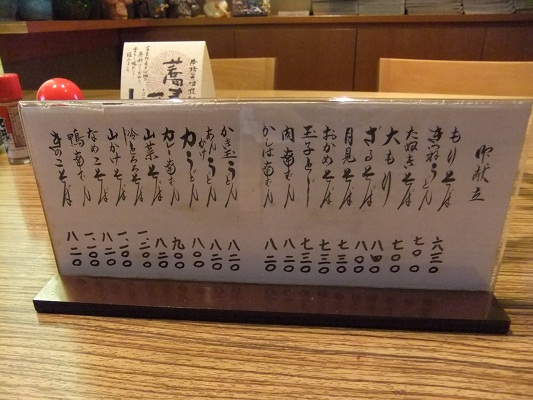 御献立
もりそば 六三〇
きつねうどん
たぬきそば 七〇〇
大もり 七〇〇
ざるそば
月見そば
おかめそば 七三〇
玉子とじ 七三〇
肉南ばん 八二〇
かしは南ばん 八二〇
かき玉うどん 八二〇
あんかけうどん 八二〇
力うどん 八〇〇
カレー南ばん
山菜そば
冷とろろそば
山かけそば
なめこそば 八二〇
鴨南ばん 一、一〇〇
きのこそば 八二〇
蕎